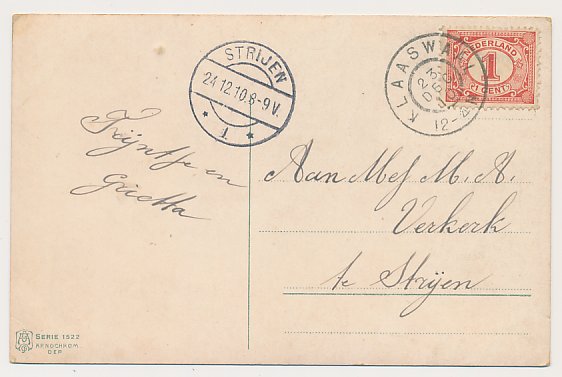 STRIJEN
24.12.10.8-9V.
* 1 *
KLAASWAAL
23
DEC
12-4N
NEDERLAND
1
CENT
Trijntje en
Grietta
Aan Mej M. A.
Verkerk
te Strijen
SERIE 1522
DEP